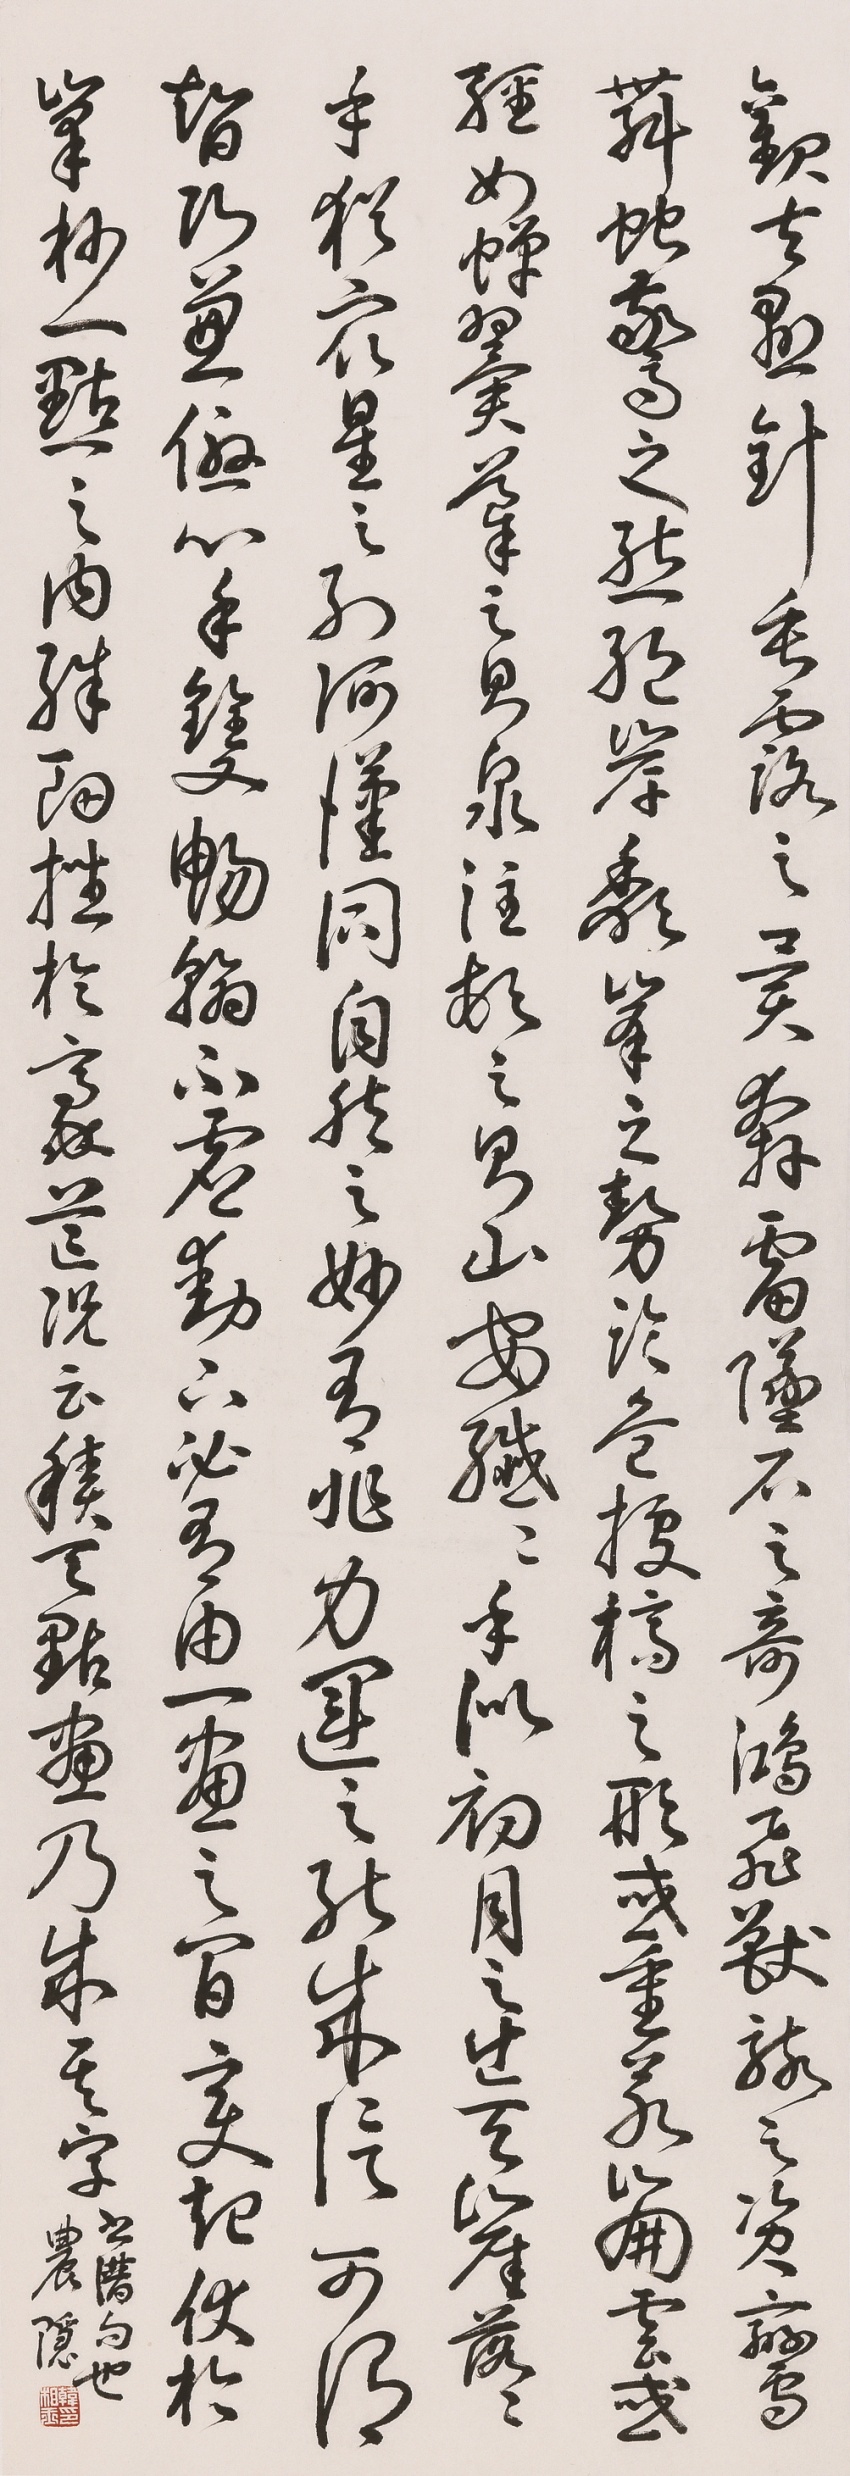 觀夫懸針垂露之異奔雷墜石之奇鴻飛獸駭之姿鸞
舞蛇驚之態絕岸頹峯之勢臨危據槁之形或重若崩雲或
輕如蟬翼導之則泉注頓之則山安纖〻乎似初月之出天崖落〻
乎猶衆星之列河漢同自然之妙有非力運之能成信可謂
智巧兼優心手雙暢翰不虛動下必有由一畫之間變起伏於
峯杪一點之內殊衄挫於毫芒況云積其點畫乃成其字
書譜句也
農隱